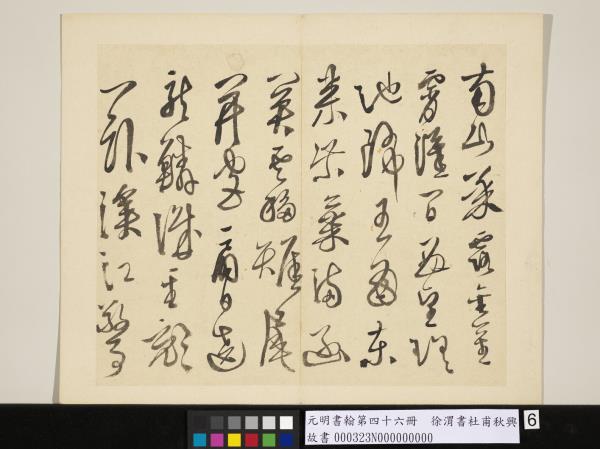 南山承露金莖
霄漢間西望瑤
池降王母東
來紫氣滿函
關雲移雉尾
開宮扇日遶
龍鱗識聖顏
一臥滄江驚
元明書翰第四十六冊　徐渭書杜甫秋興
故書 000323N000000000
6